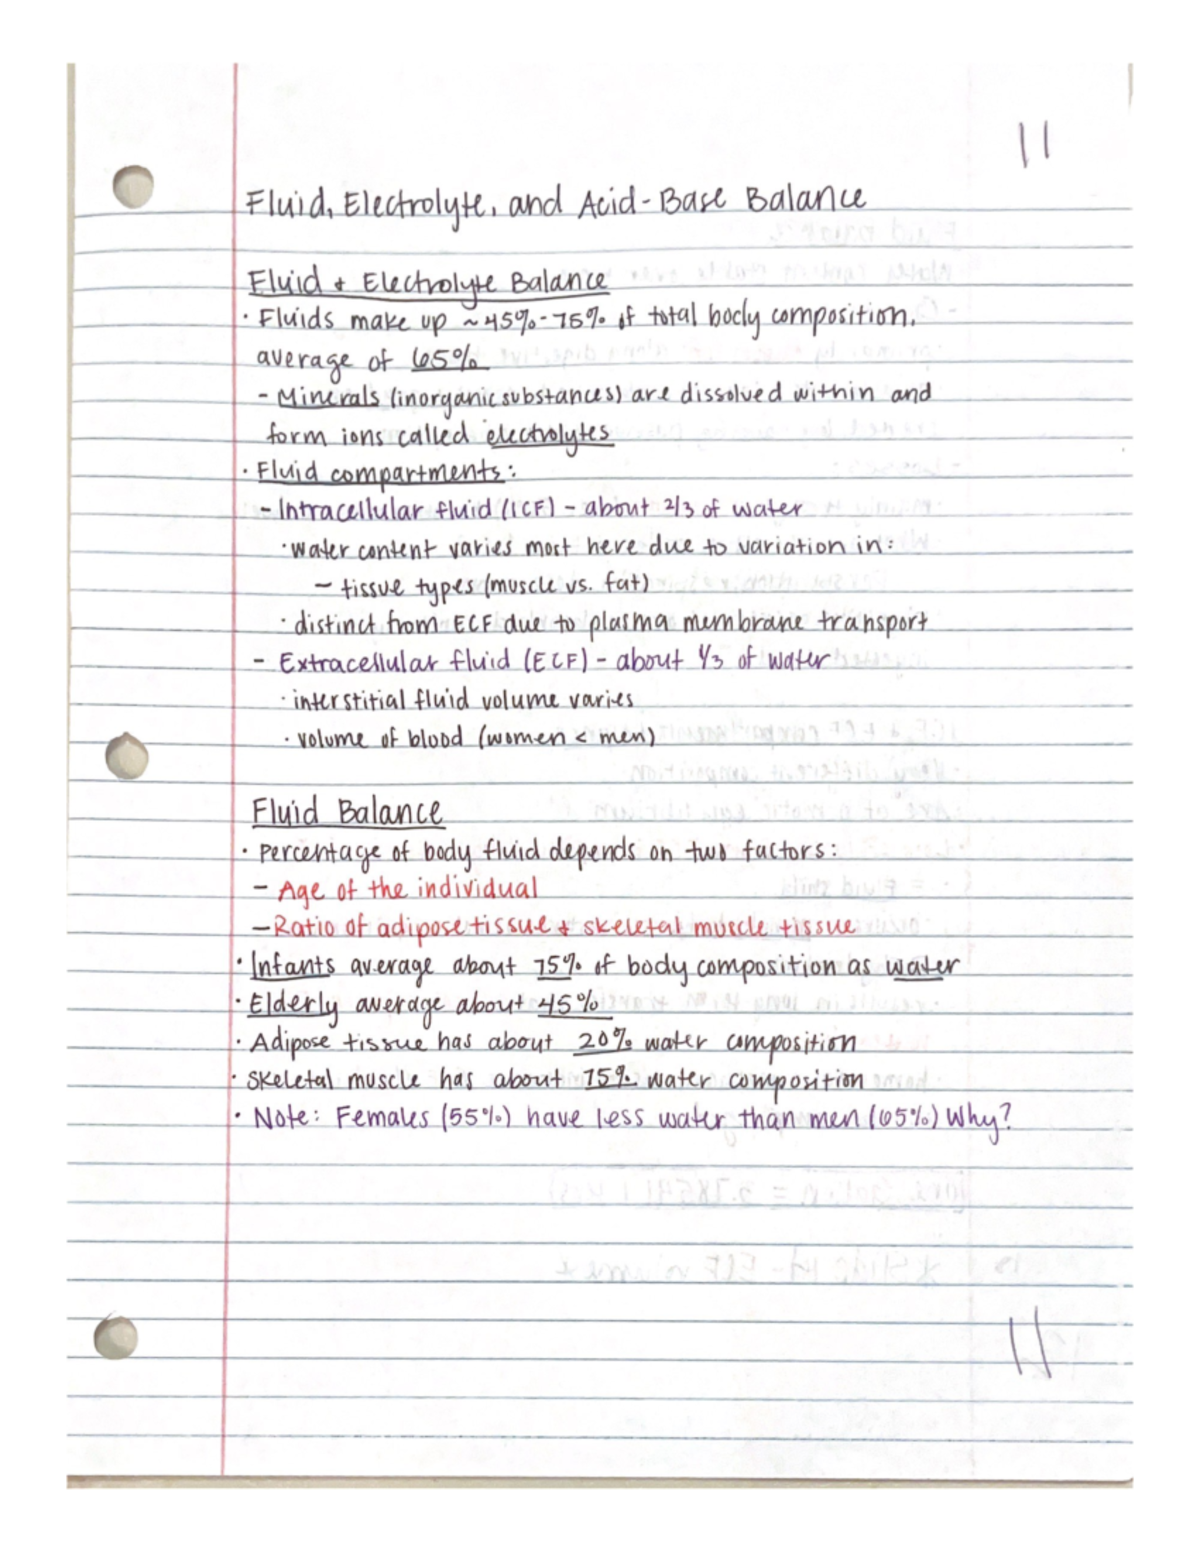 11
Fluid, Electrolyte, and Acid-Base Balance
Fluid & Electrolyte Balance
· Fluids make up ~45%-75% of total body composition,
average of 65%
- Minerals (inorganic substances) are dissolved within and
form ions called electrolytes
· Fluid compartments:
- Intracellular fluid (ICF) - about 2/3 of water
· water content varies most here due to variation in:
- tissue types (muscle vs. fat)
· distinct from ECF due to plasma membrane transport
- Extracellular fluid (ECF) - about 1/3 of water
· interstitial fluid volume varies
· volume of blood (women < men)
Fluid Balance
· Percentage of body fluid depends on two factors:
- Age of the individual
- Ratio of adipose tissue & skeletal muscle tissue
· Infants average about 75% of body composition as water
· Elderly average about 45%
· Adipose tissue has about 20% water composition
· Skeletal muscle has about 75% water composition
· Note: Females (55%) have less water than men (65%) Why?
11